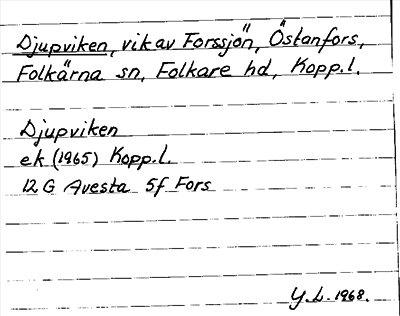 Djupviken, vik av Forssjön, Östanfors,
Folkärna sn, Folkare hd, Kopp.l.
Djupviken
ek (1965) Kopp.l.
12 G Avesta 5f Fors
Y.L. 1968.